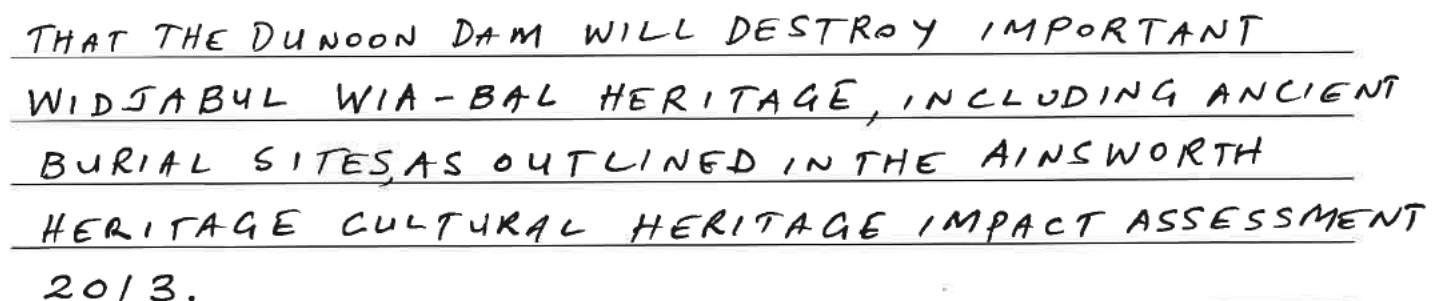 THAT THE DUNOON DAM WILL DESTROY IMPORTANT
WIDJABUL WIA-BAL HERITAGE, INCLUDING ANCIENT
BURIAL SITES, AS OUTLINED IN THE AINSWORTH
HERITAGE CULTURAL HERITAGE IMPACT ASSESSMENT
2013.